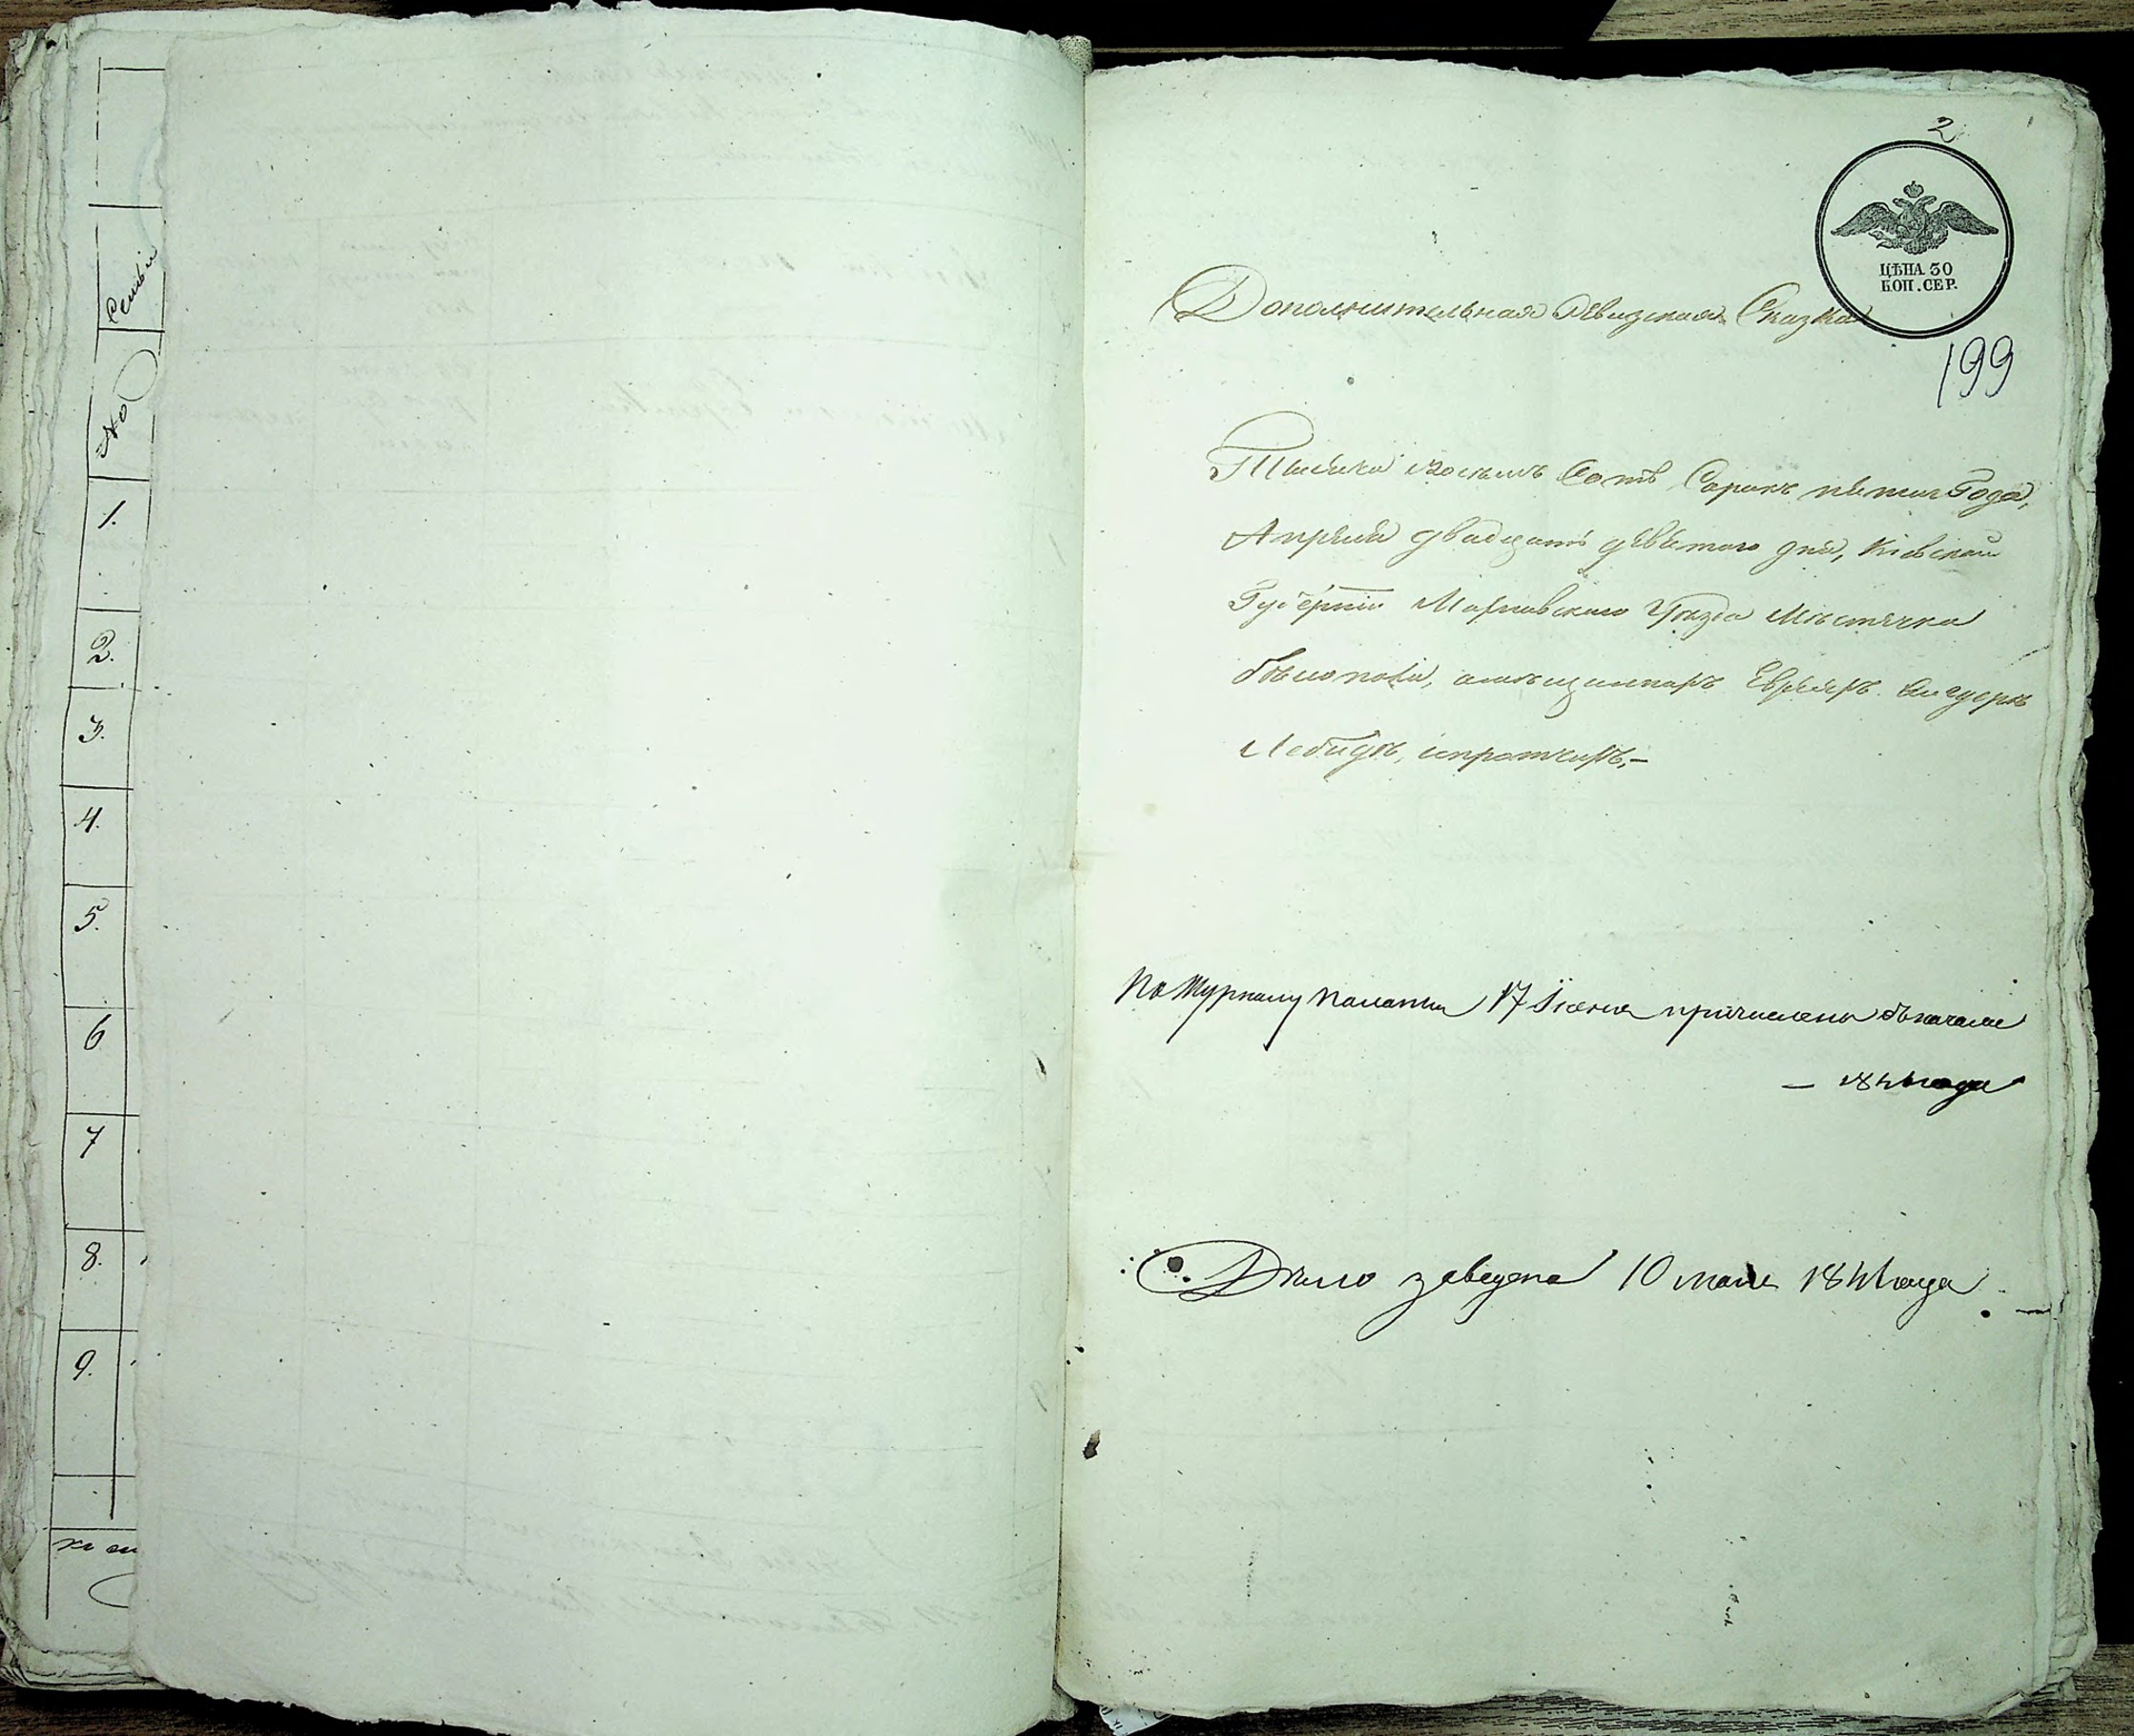 Семьи
№
1.
2.
3.
4.
5.
6
7
8.
9.
2
ЦѢНА 30
КОП. СЕР.
Дополнительная Ревизская Сказка
199
Тысяча восемь Сотъ Сорокъ пятаго Года,
Апреля двадцать девятого дня, Кіевской
Губерніи Махновского Уѣзда Мѣстечка
Бѣлополя, Евреяхъ
Лейбидѣ, и прочихъ,-
По Журналу Палаты 17 Іюня причислены съ начала
— 1844 года
Дѣло заведено 10 мая 1844 года